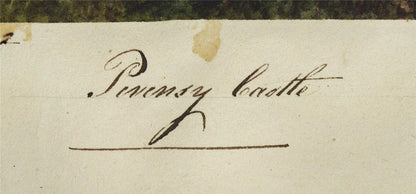 Pevensy Castle